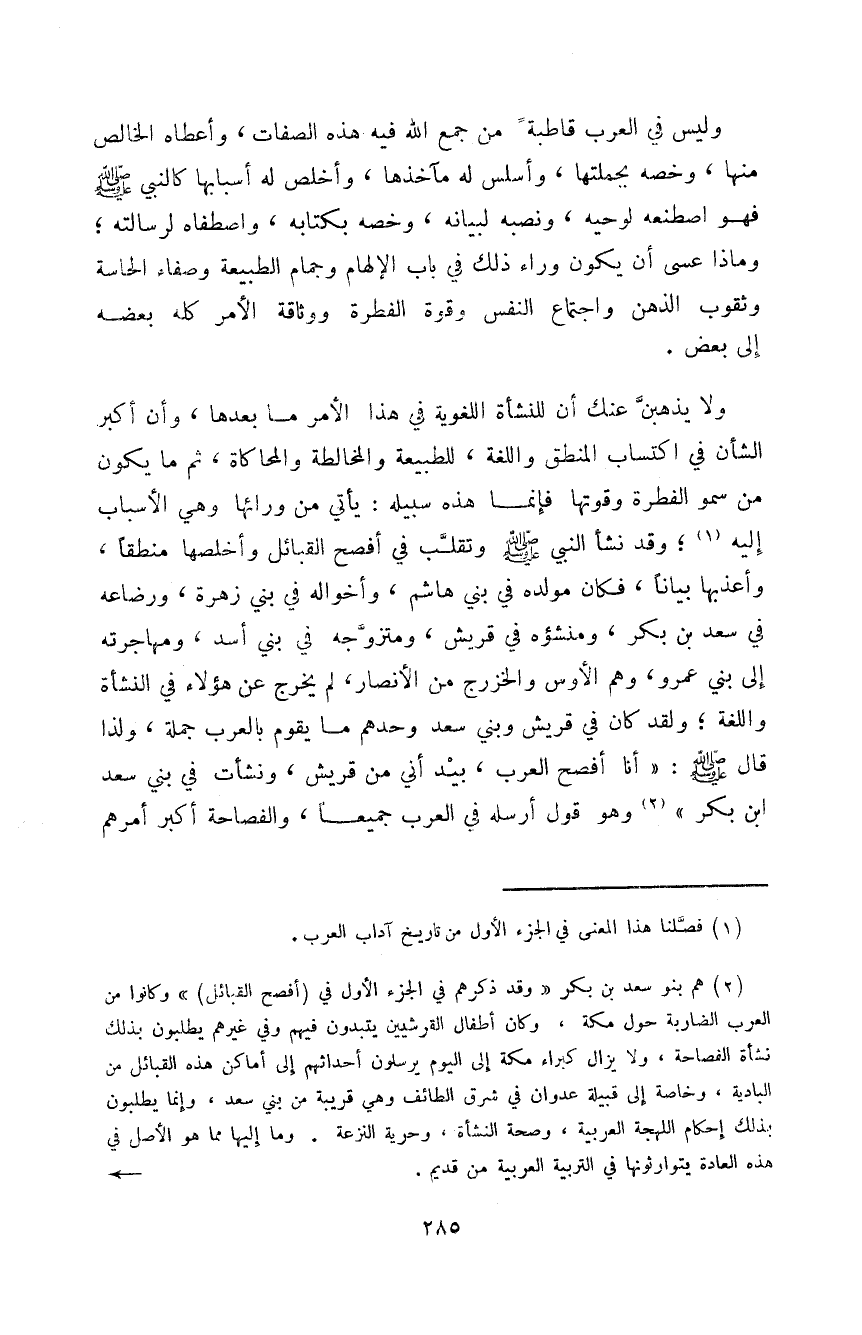 وليس في العرب قاطبةً من جمع الله فيه هذه الصفات ، وأعطاه الخالص
منها ، وخصه بجملتها ، وأسلس له مآخذها ، وأخلص له أسبابها كالنبي ﷺ
فهـو اصطنعه لوحيه ، ونصبه لبيانه ، وخصه بكتابه ، واصطفاه لرسالته ؛
وماذا عسى أن يكون وراء ذلك في باب الإلهام وجمام الطبيعة وصفاء الحاسة
وثقوب الذهن واجتماع النفس وقوة الفطرة ووثاقة الأمر كله بعضـه
إلى بعض .
ولا يذهبنَّ عنك أن للنشأة اللغوية في هذا الأمر مـا بعدها ، وأن أكبر
الشأن في اكتساب المنطق واللغة ، للطبيعة والمخالطة والمحاكاة ، ثم ما يكون
من سمو الفطرة وقوتها فإنمـا هذه سبيله : يأتي من ورائها وهي الأسباب
إليه (١) ؛ وقد نشأ النبي ﷺ وتقلَّب في أفصح القبائل وأخلصها منطقاً ،
وأعذبها بياناً ، فكان مولده في بني هاشم ، وأخواله في بني زهرة ، ورضاعه
في سعد بن بكر ، ومنشؤه في قريش ، ومتزوَّجه في بني أسد ، ومهاجرته
إلى بني عمرو، وهم الأوس والخزرج من الأنصار، لم يخرج عن هؤلاء في النشأة
واللغة ؛ ولقد كان في قريش وبني سعد وحدهم مـا يقوم بالعرب جملة ، ولذا
قال ﷺ : « أنا أفصح العرب ، بيْد أني من قريش ، ونشأت في بني سعد
ابن بكر » (٢) وهو قول أرسله في العرب جميعـاً ، والفصاحة أكبر أمرهم
(١) فصَّلنا هذا المعنى في الجزء الأول من تاريخ آداب العرب .
(٢) هم بنو سعد بن بكر « وقد ذكرهم في الجزء الأول في (أفصح القبائل) » وكانوا من
العرب الضاربة حول مكة ، وكان أطفال القرشيين يتبدون فيهم وفي غيرهم يطلبون بذلك
نشأة الفصاحة ، ولا يزال كبراء مكة إلى اليوم يرسلون أحداثهم إلى أماكن هذه القبائل من
البادية ، وخاصة إلى قبيلة عدوان في شرق الطائف وهي قريبة من بني سعد ، وإنما يطلبون
بذلك إحكام اللهجة العربية ، وصحة النشأة ، وحرية النزعة . وما إليها مما هو الأصل في
هذه العادة يتوارثونها في التربية العربية من قديم . ←
٢٨٥